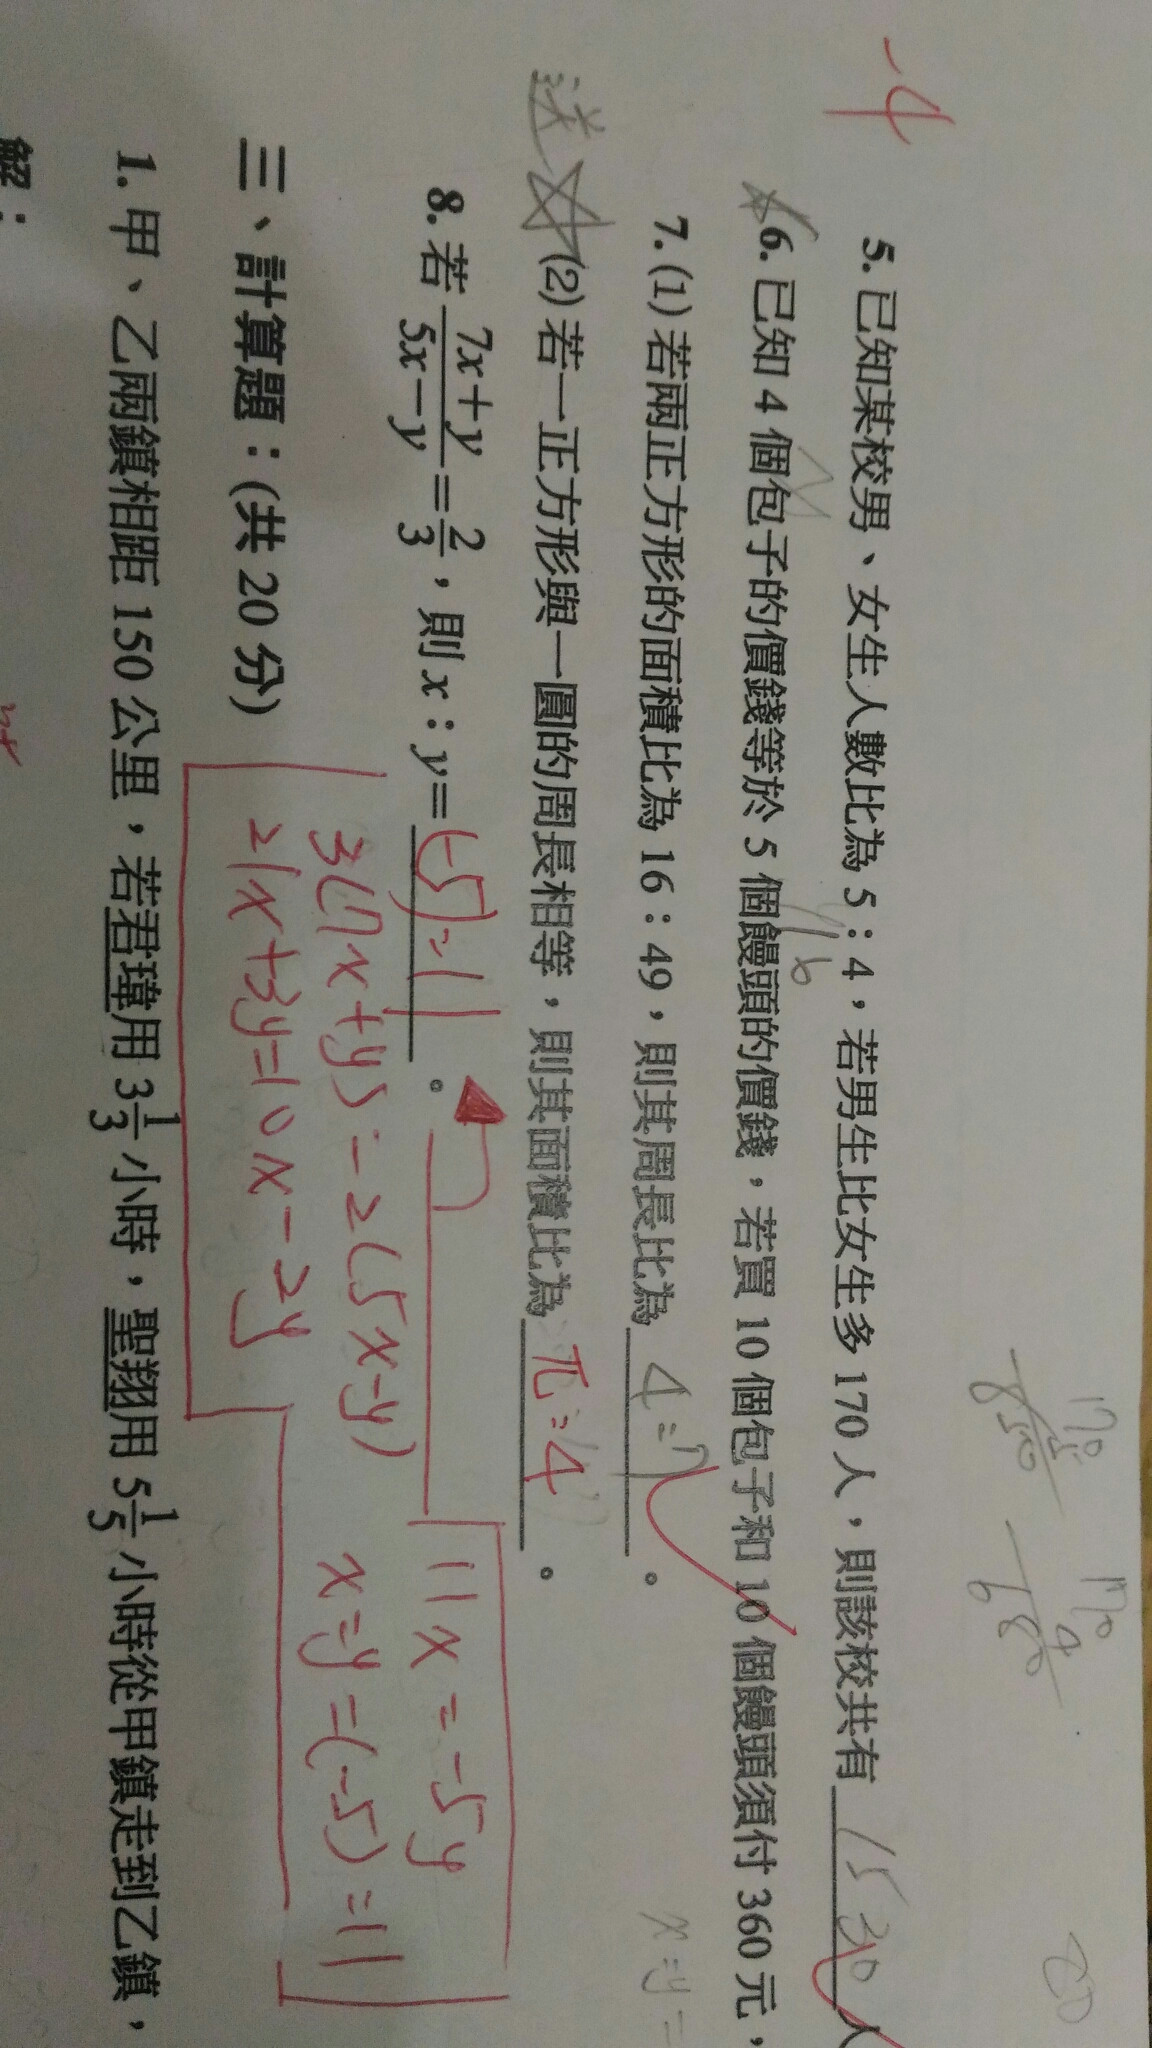 -4
170
5
850
170
4
680
5. 已知某校男、女生人數比為 5：4，若男生比女生多 170 人，則該校共有 1530 人
6. 已知 4 個包子的價錢等於 5 個饅頭的價錢，若買 10 個包子和 10 個饅頭須付 360 元，
x:y=
7. (1) 若兩正方形的面積比為 16：49，則其周長比為 4:7 。
送☆(2) 若一正方形與一圓的周長相等，則其面積比為 π:4 。
8. 若 (7x+y)/(5x−y)=2/3，則 x：y= (-5):11 。
3(7x+y)=2(5x-y)
21x+3y=10x-2y
11x=-5y
x:y=(-5):11
三、計算題：(共 20 分)
1. 甲、乙兩鎮相距 150 公里，若君瑋用 3 1/3 小時，聖翔用 5 1/5 小時從甲鎮走到乙鎮，
解：